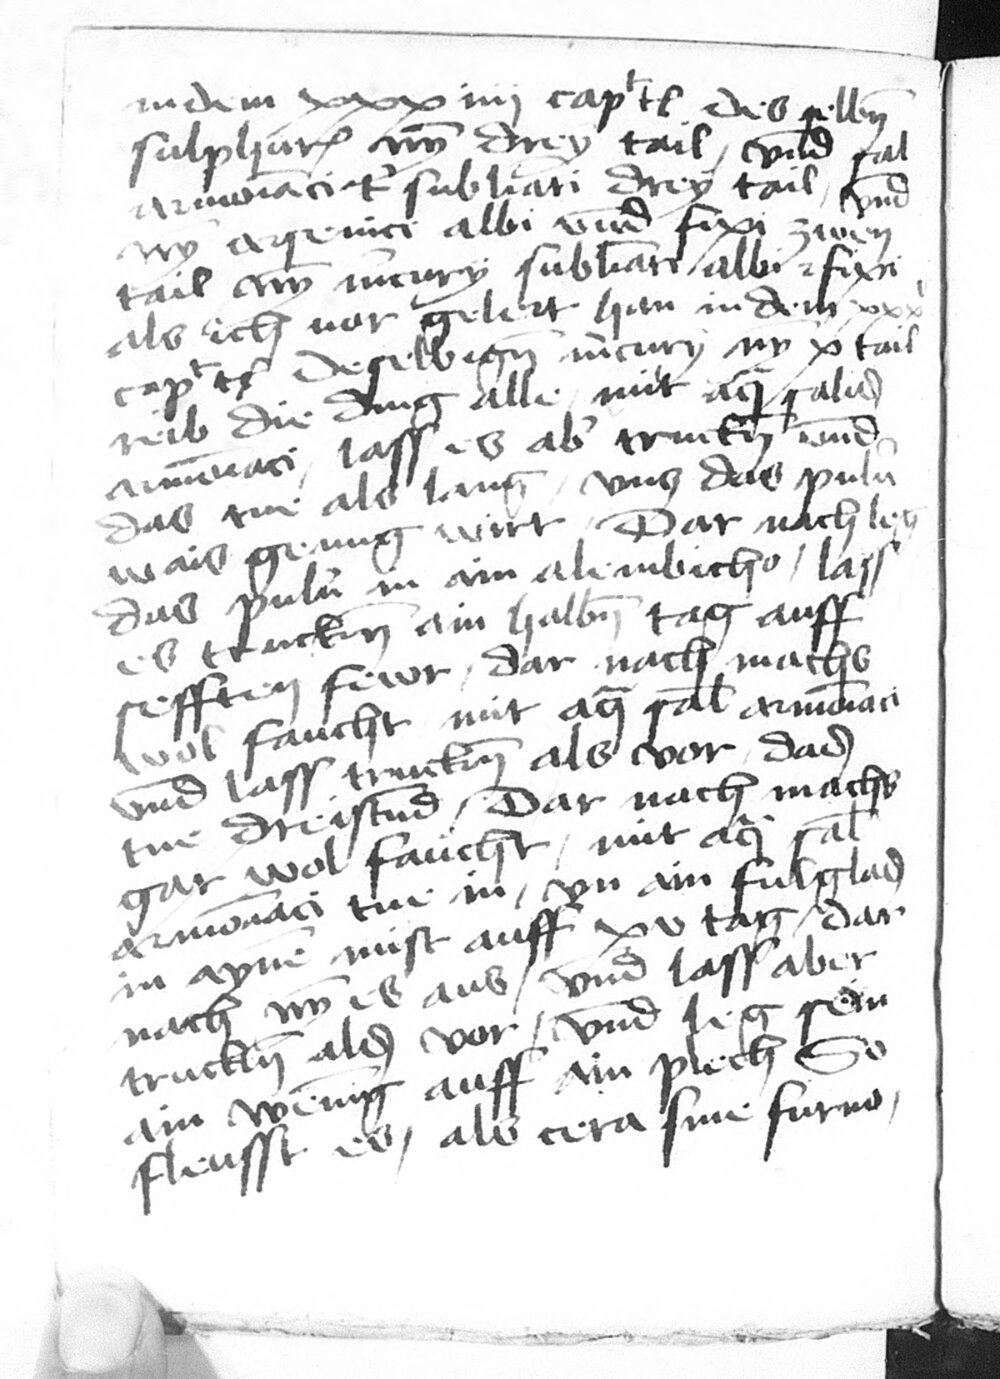 in dem xxxiiij capᵗtl des selbñ
sulphurꝭ nȳ drey tail / vnd sal
armoniaci tˀ subliāti drey tail / vnd
nȳ arsenici albi vnd fixi zwen
tail nȳ m̄cury subliāti albi ⁊ fixi
als ich vor gelert han in dem xxxˡ
capᵗ tl Deselbign̄ m̄cury nȳ x tail
reib die ding alle mit aq̄ salis
armōiaci / lass es abˀ truckn̄ vnd
das tue als lang / vns das pulū
wais genug wirt / Dar nach leg
das pulū in ain alembicho / lass
es truckn̄ ain halbn̄ tag auff
sefften fewr / dar nach machs
wol faucht mit aq̄ sal̄ armōiaci
vnd lass truckn̄ als vor / das
tue dreistūd / Dar nach machs
gar wol faücht / mit aq̄ sal̄
armōiaci tue in / vn ain fulglas
in ayne mist auff xv tag / dar
nach nȳ es aus / vnd lass aber
truckn̄ als vor / vnd leg sein
ain wenig auff ain plech So
fleusst es / als cera sine furno /